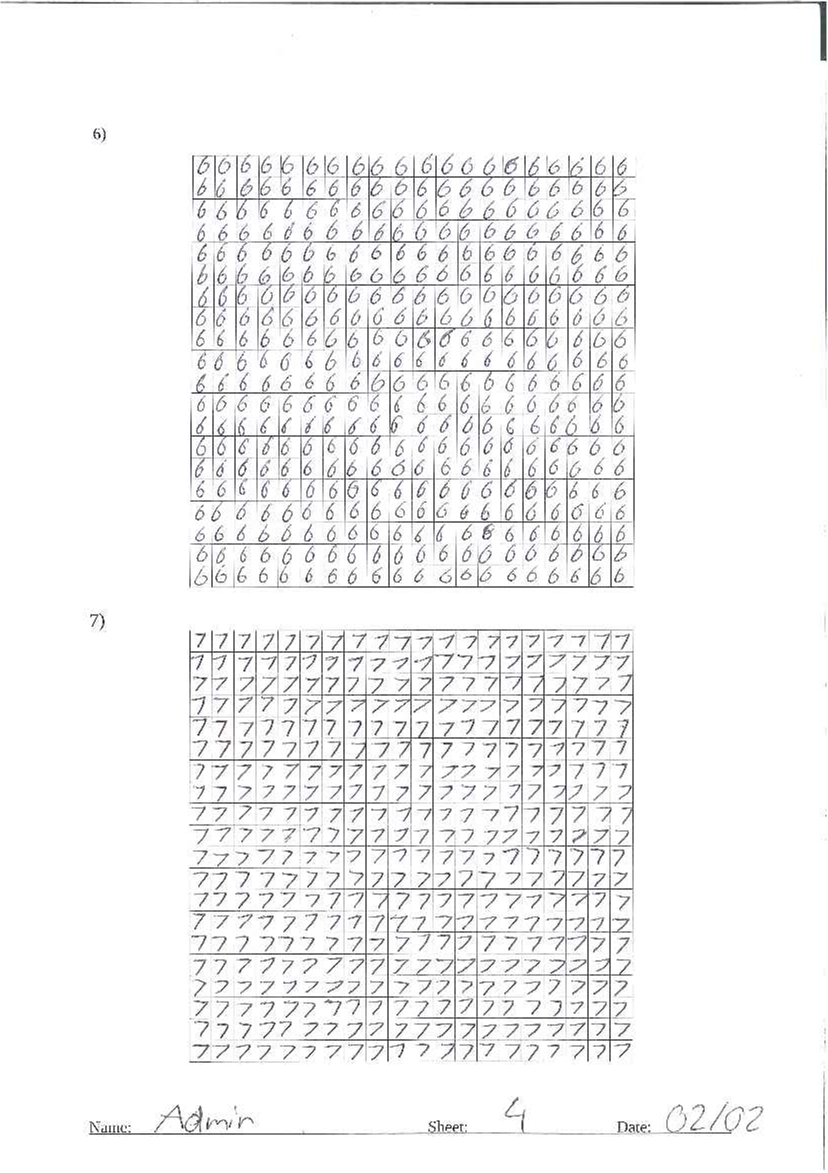 6)
6 6 6 6 6 6 6 6 6 6 6 6 6 6 6 6 6 6 6 6
6 6 6 6 6 6 6 6 6 6 6 6 6 6 6 6 6 6 6 6
6 6 6 6 6 6 6 6 6 6 6 6 6 6 6 6 6 6 6 6
6 6 6 6 6 6 6 6 6 6 6 6 6 6 6 6 6 6 6 6
6 6 6 6 6 6 6 6 6 6 6 6 6 6 6 6 6 6 6 6
6 6 6 6 6 6 6 6 6 6 6 6 6 6 6 6 6 6 6 6
6 6 6 6 6 6 6 6 6 6 6 6 6 6 6 6 6 6 6 6
6 6 6 6 6 6 6 6 6 6 6 6 6 6 6 6 6 6 6 6
6 6 6 6 6 6 6 6 6 6 6 6 6 6 6 6 6 6 6 6
6 6 6 6 6 6 6 6 6 6 6 6 6 6 6 6 6 6 6 6
6 6 6 6 6 6 6 6 6 6 6 6 6 6 6 6 6 6 6 6
6 6 6 6 6 6 6 6 6 6 6 6 6 6 6 6 6 6 6 6
6 6 6 6 6 6 6 6 6 6 6 6 6 6 6 6 6 6 6 6
6 6 6 6 6 6 6 6 6 6 6 6 6 6 6 6 6 6 6 6
6 6 6 6 6 6 6 6 6 6 6 6 6 6 6 6 6 6 6 6
6 6 6 6 6 6 6 6 6 6 6 6 6 6 6 6 6 6 6 6
6 6 6 6 6 6 6 6 6 6 6 6 6 6 6 6 6 6 6 6
6 6 6 6 6 6 6 6 6 6 6 6 6 6 6 6 6 6 6 6
6 6 6 6 6 6 6 6 6 6 6 6 6 6 6 6 6 6 6 6
6 6 6 6 6 6 6 6 6 6 6 6 6 6 6 6 6 6 6 6
7)
7 7 7 7 7 7 7 7 7 7 7 7 7 7 7 7 7 7 7 7
7 7 7 7 7 7 7 7 7 7 7 7 7 7 7 7 7 7 7 7
7 7 7 7 7 7 7 7 7 7 7 7 7 7 7 7 7 7 7 7
7 7 7 7 7 7 7 7 7 7 7 7 7 7 7 7 7 7 7 7
7 7 7 7 7 7 7 7 7 7 7 7 7 7 7 7 7 7 7 7
7 7 7 7 7 7 7 7 7 7 7 7 7 7 7 7 7 7 7 7
7 7 7 7 7 7 7 7 7 7 7 7 7 7 7 7 7 7 7 7
7 7 7 7 7 7 7 7 7 7 7 7 7 7 7 7 7 7 7 7
7 7 7 7 7 7 7 7 7 7 7 7 7 7 7 7 7 7 7 7
7 7 7 7 7 7 7 7 7 7 7 7 7 7 7 7 7 7 7 7
7 7 7 7 7 7 7 7 7 7 7 7 7 7 7 7 7 7 7 7
7 7 7 7 7 7 7 7 7 7 7 7 7 7 7 7 7 7 7 7
7 7 7 7 7 7 7 7 7 7 7 7 7 7 7 7 7 7 7 7
7 7 7 7 7 7 7 7 7 7 7 7 7 7 7 7 7 7 7 7
7 7 7 7 7 7 7 7 7 7 7 7 7 7 7 7 7 7 7 7
7 7 7 7 7 7 7 7 7 7 7 7 7 7 7 7 7 7 7 7
7 7 7 7 7 7 7 7 7 7 7 7 7 7 7 7 7 7 7 7
7 7 7 7 7 7 7 7 7 7 7 7 7 7 7 7 7 7 7 7
7 7 7 7 7 7 7 7 7 7 7 7 7 7 7 7 7 7 7 7
7 7 7 7 7 7 7 7 7 7 7 7 7 7 7 7 7 7 7 7
Name: Admin Sheet: 4 Date: 02/02